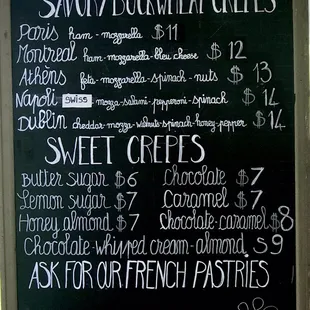 SAVORY BUCKWHEAT CREPES
Paris ham-mozzarella $11
Montreal ham-mozzarella-bleu cheese $12
Athens feta-mozzarella-spinach-nuts $13
Napoli swiss mozza-salami-pepperoni-spinach $14
Dublin cheddar-mozza-walnuts-spinach-honey-pepper $14
SWEET CREPES
Butter sugar $6 Chocolate $7
Lemon sugar $7 Caramel $7
Honey almond $7 Chocolate-caramel $8
Chocolate-whipped cream-almond $9
ASK FOR OUR FRENCH PASTRIES